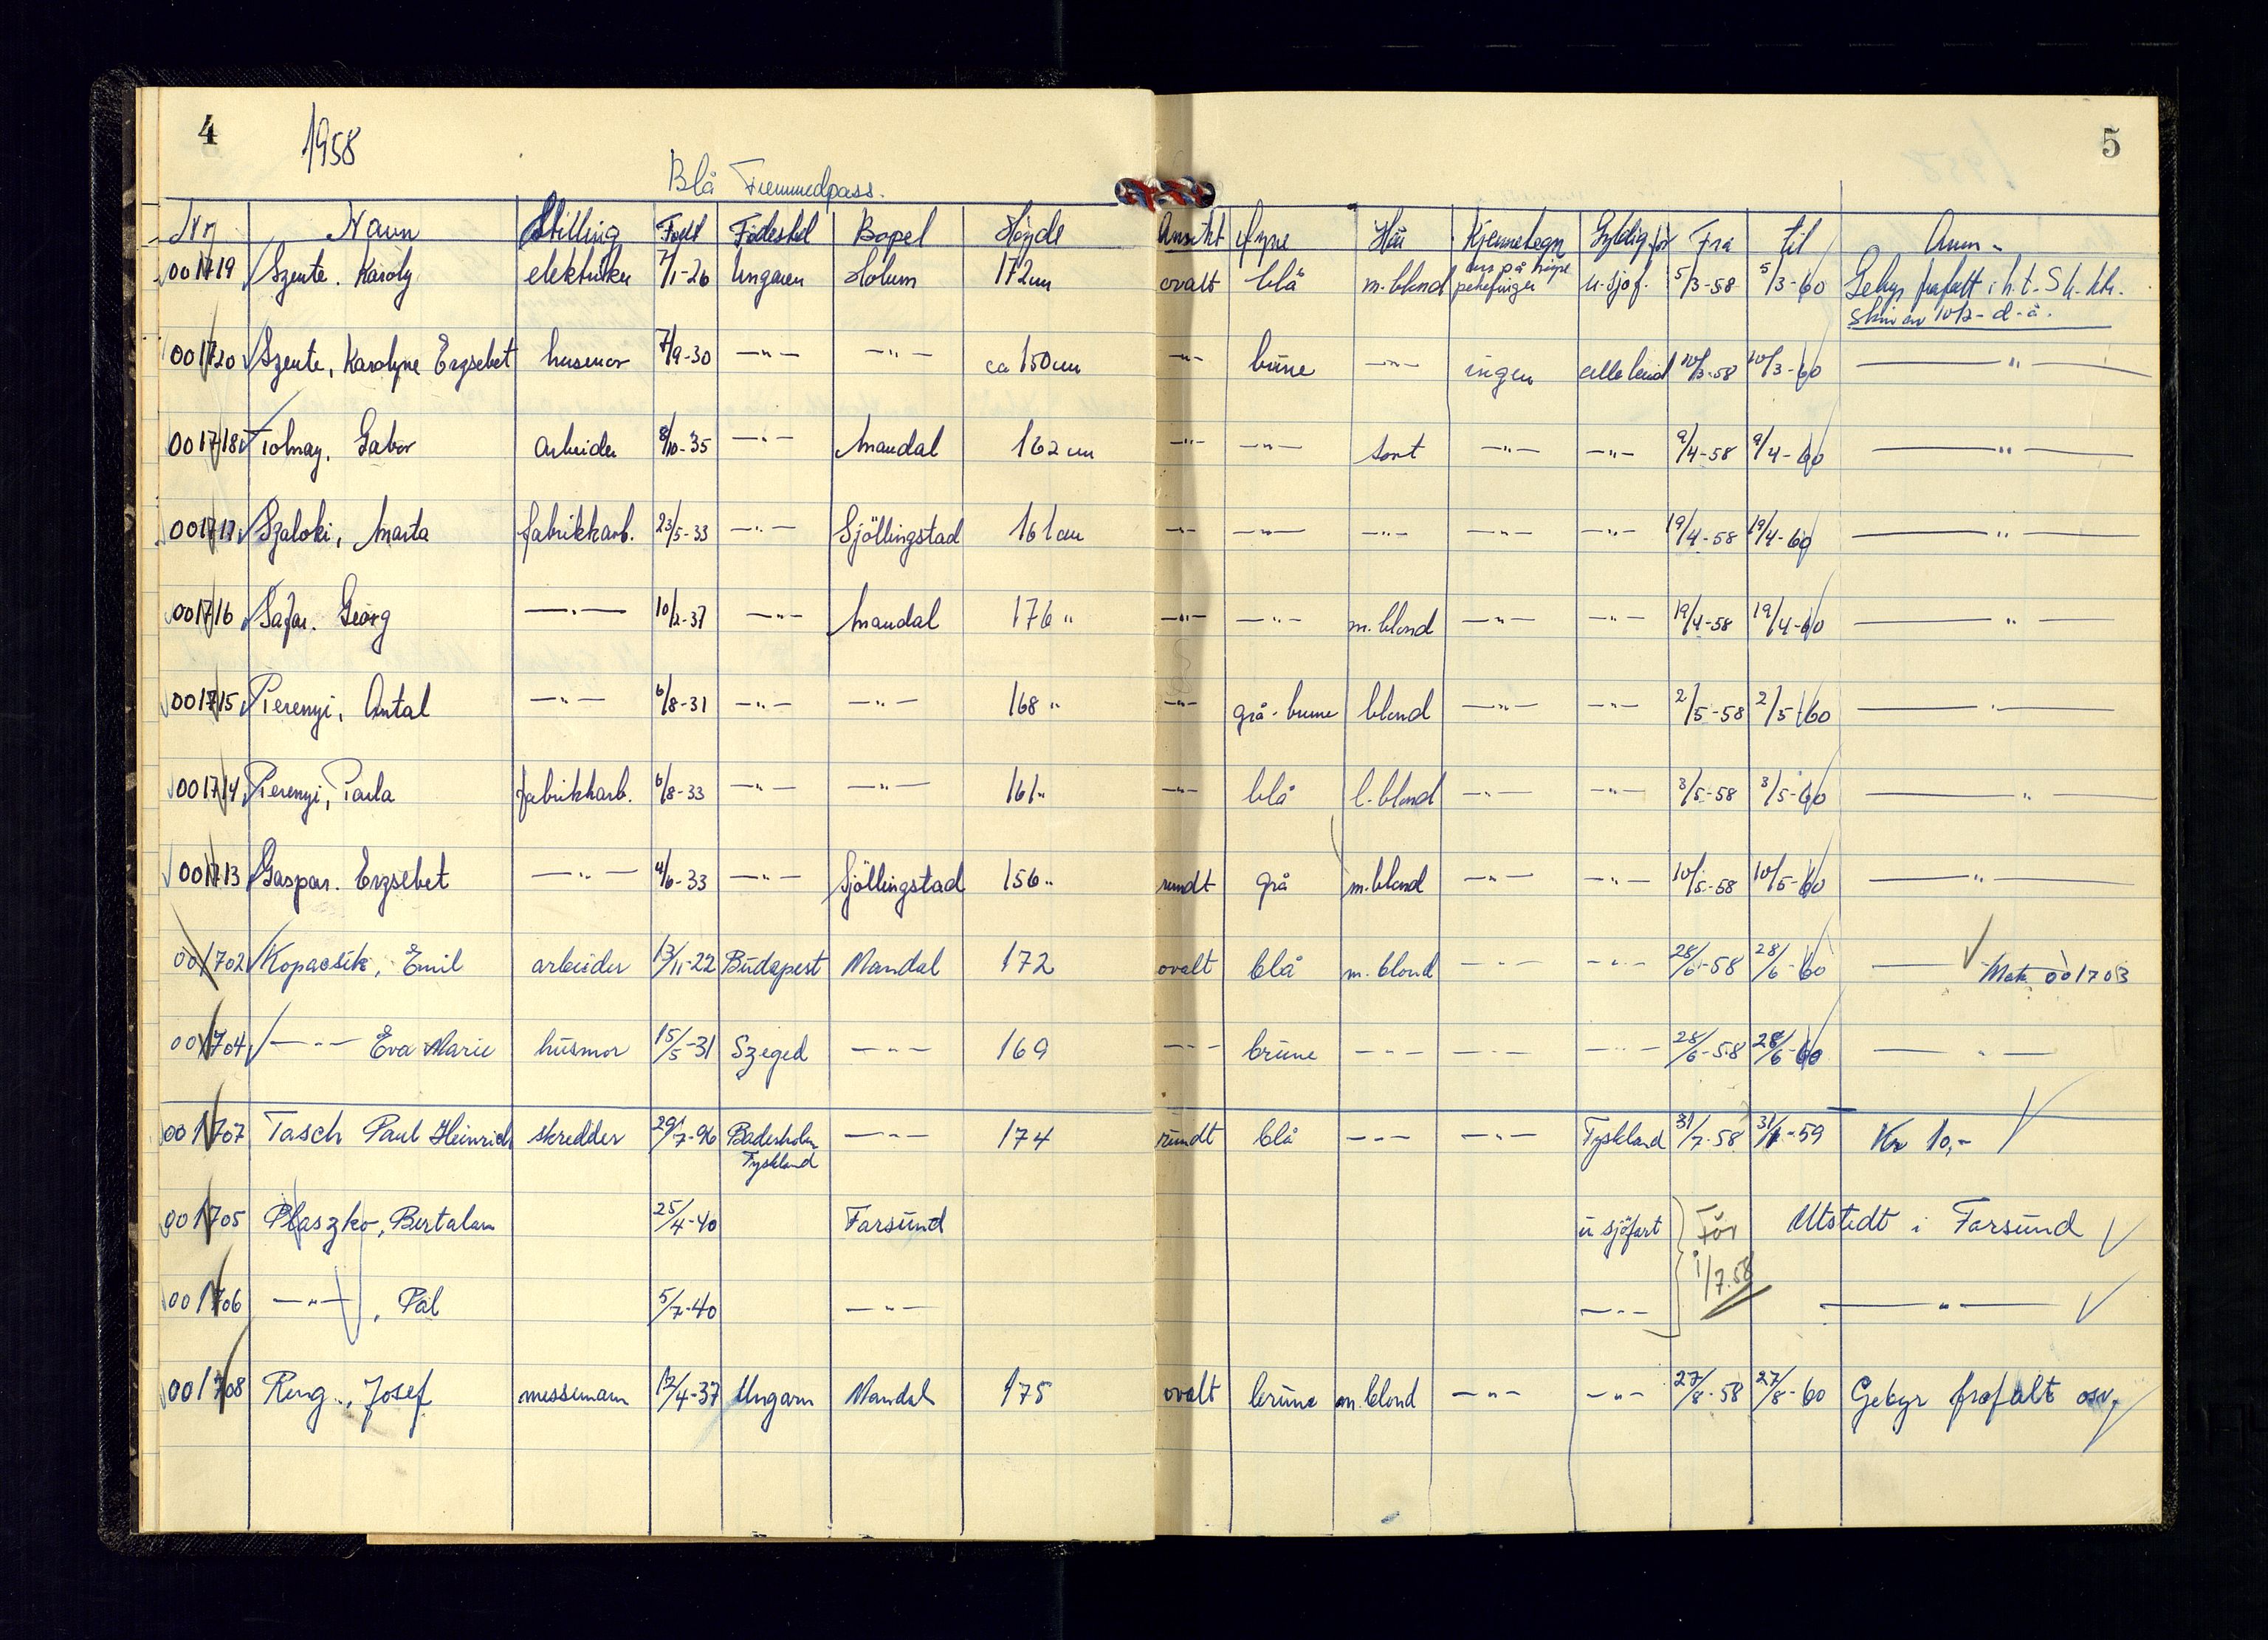 4
1958
5
Blå Fremmedpass.
Nr Navn Stilling Født Fødested Bopel Høyde Ansikt Øyne Hår Kjennetegn Gyldig for Fra til Anm.
001719 Szente. Karoly elektriker 7/1-26 Ungarn Holum 172 cm ovalt blå m. blond arr på høire u. sjøf. 5/3-58 5/3-60 Gebyr frafalt i h.t.
pekefinger
skriv av 10/2- d.å.
001720 Szente, Karolyne Erzsebet husmor 7/9-30 —"— —"— ca 150 cm —"— brune —"— ingen alle land 10/3-58 10/3-60 —"—
001718 Tolnay, Gabor Arbeider 8/10-35 —"— Mandal 162 cm —"— —"— sort —"— —"— 9/4-58 9/4-60 —"—
001717 Szaloki, Marta fabrikkarb. 23/5-33 —"— Sjöllingstad 161 cm —"— —"— —"— —"— —"— 19/4-58 19/4-60 —"—
001716 Safar. Georg —"— 10/2-37 —"— Mandal 176 " —"— —"— m. blond —"— —"— 19/4-58 19/4-60 —"—
001715 Perenyi, Antal —"— 6/8-31 —"— —"— 168 " —"— grå-brune blond —"— —"— 2/5-58 2/5-60 —"—
001714 Perenyi, Paula fabrikkarb. 6/8-33 —"— —"— 161 " —"— blå l. blond —"— —"— 3/5-58 3/5-60 —"—
001713 Gaspar. Erzsebet —"— 4/6-33 —"— Sjöllingstad 156 " rundt grå m. blond —"— —"— 10/5-58 10/5-60 —"—
001702 Kopacsik, Emil arbeider 13/11-22 Budapest Mandal 172 ovalt blå m. blond —"— —"— 28/6-58 28/6-60 — Mak. 001703
001704 —"— Eva Marie husmor 15/5-31 Szeged —"— 169 —"— brune —"— —"— —"— 28/6-58 28/6-60 —"—
001707 Tasch Paul Heinrich skredder 29/7-96 —"— 174 rundt blå —"— —"— Tyskland 31/7-58 31/1-59 Kr 10,-
Tyskland
001705 Plaszko, Bertalan 25/4-40 Farsund u sjøfart Før Utstedt i Farsund
1/7.58
001706 —"—, Pal 5/7-40 —"— —"— —"—
001708 Reng., Josef messemann 12/4-37 Ungarn Mandal 175 ovalt brune m. blond —"— —"— 27/8-58 27/8-60 Gebyr frafalt osv.